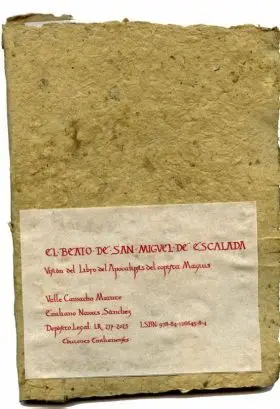 EL BEATO DE SAN MIGUEL DE ESCALADA
Visión del Libro del Apocalipsis del copista Magius
Valle Camacho Matute
Emiliano Navas Sánchez
Depósito Legal: LR 217-2023 I.S.B.N: 978-84-120645-8-4
Ediciones Emilianenses